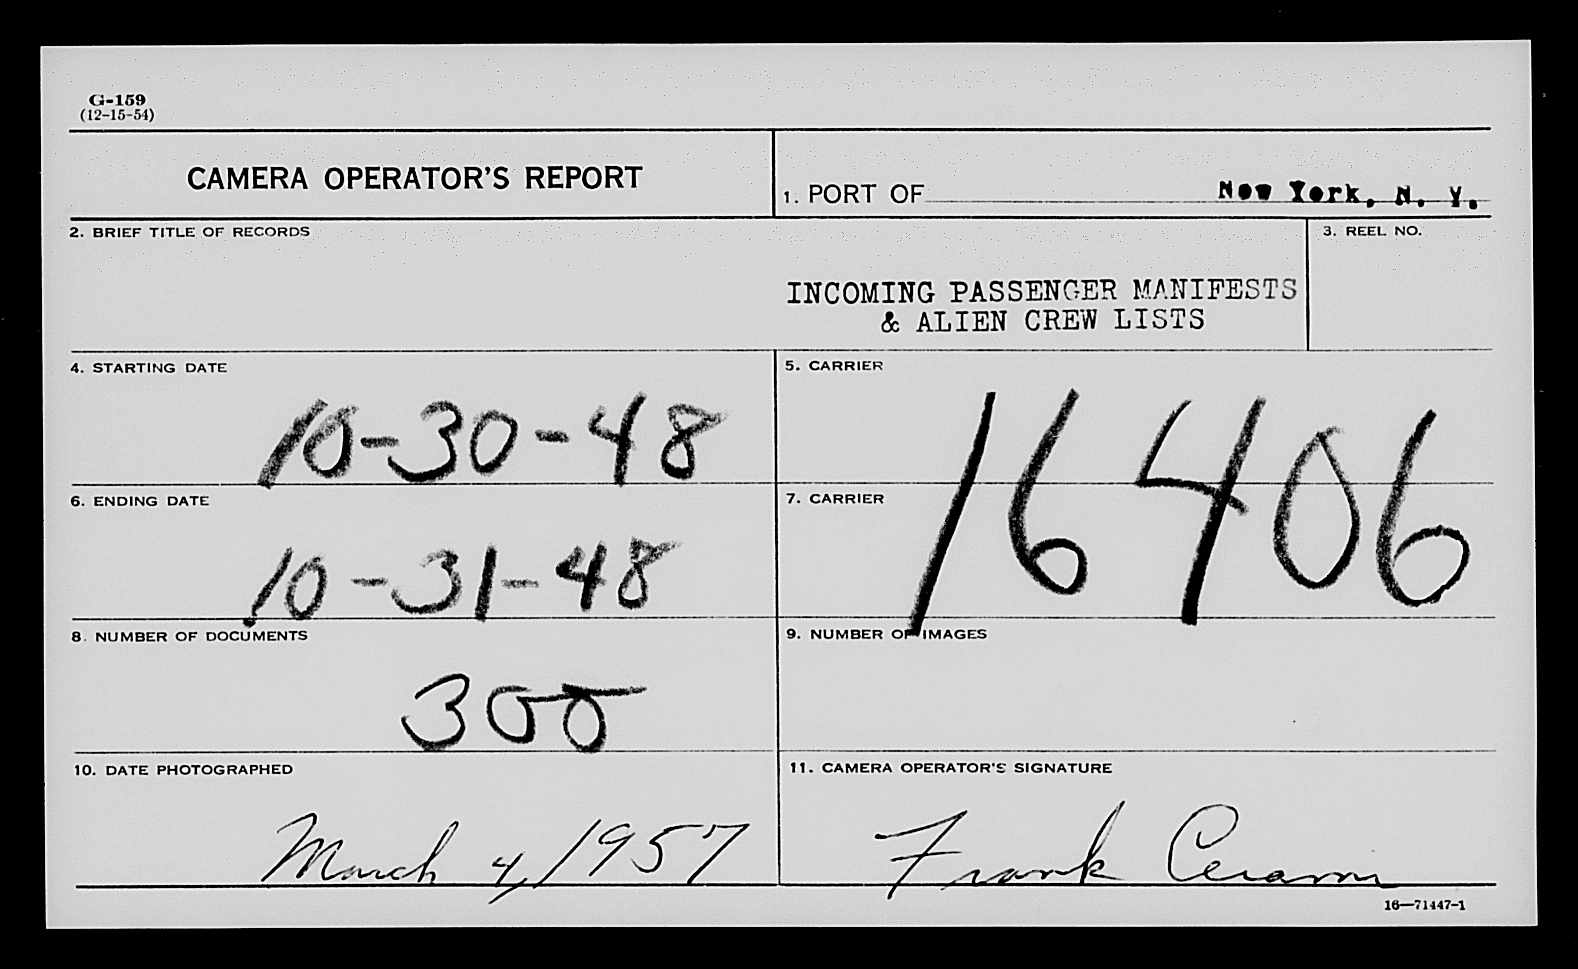 G-159
(12-15-54)
CAMERA OPERATOR'S REPORT
1. PORT OF New York, N. Y.
2. BRIEF TITLE OF RECORDS
INCOMING PASSENGER MANIFESTS
& ALIEN CREW LISTS
3. REEL NO.
4. STARTING DATE
10-30-48
5. CARRIER
16406
6. ENDING DATE
10-31-48
7. CARRIER
8. NUMBER OF DOCUMENTS
300
9. NUMBER OF IMAGES
10. DATE PHOTOGRAPHED
March 4, 1957
11. CAMERA OPERATOR'S SIGNATURE
Frank
16—71447-1